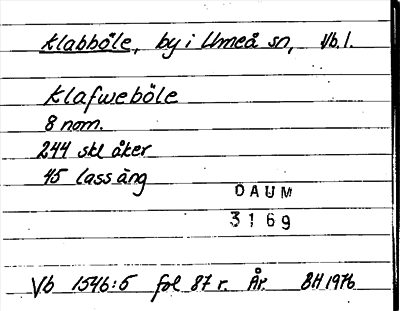 Klabböle, by i Umeå sn, Vb. l.
Klafweböle
8 nom.
244 skl åker
45 lass äng
DAUM
3169
Vb 1546:5 fol 87 r. År. BH 1976